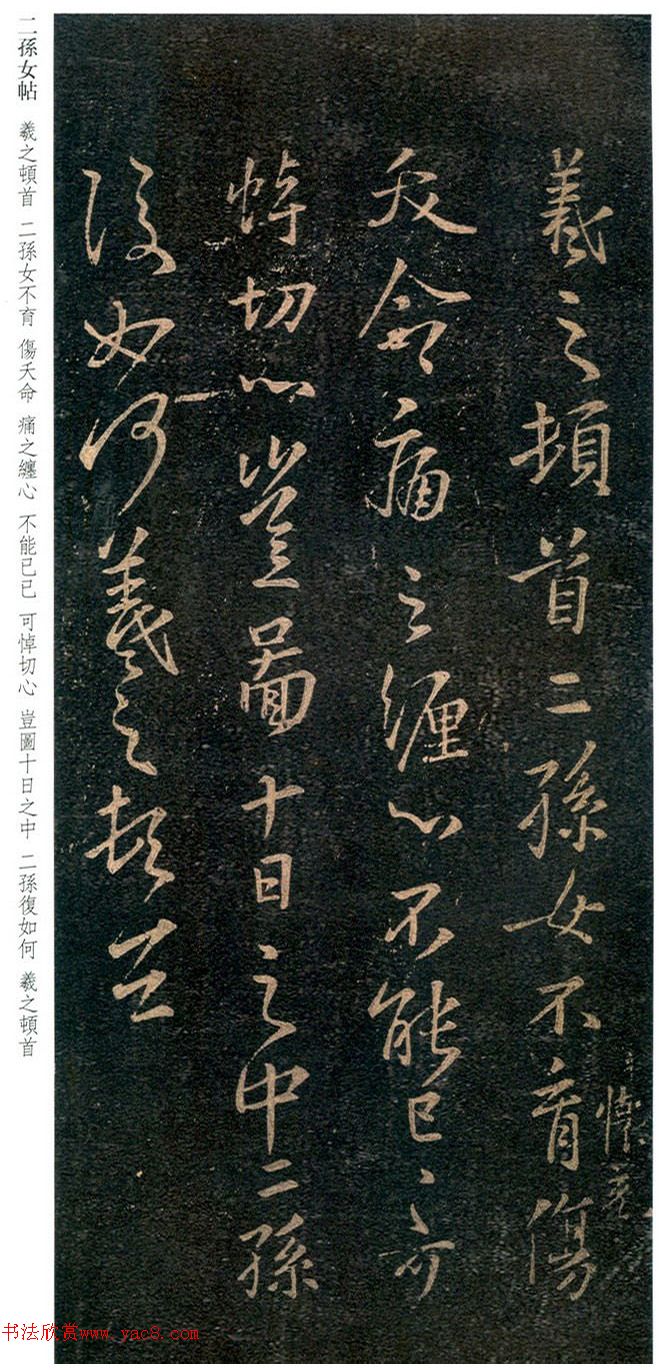 懷充
羲之頓首二孫女不育傷
夭命痛之纏心不能已〻可
悼切心豈圖十日之中二孫
復如何羲之頓首
二孫女帖 羲之頓首 二孫女不育 傷夭命 痛之纏心 不能已已 可悼切心 豈圖十日之中 二孫復如何 羲之頓首
书法欣赏www.yac8.com